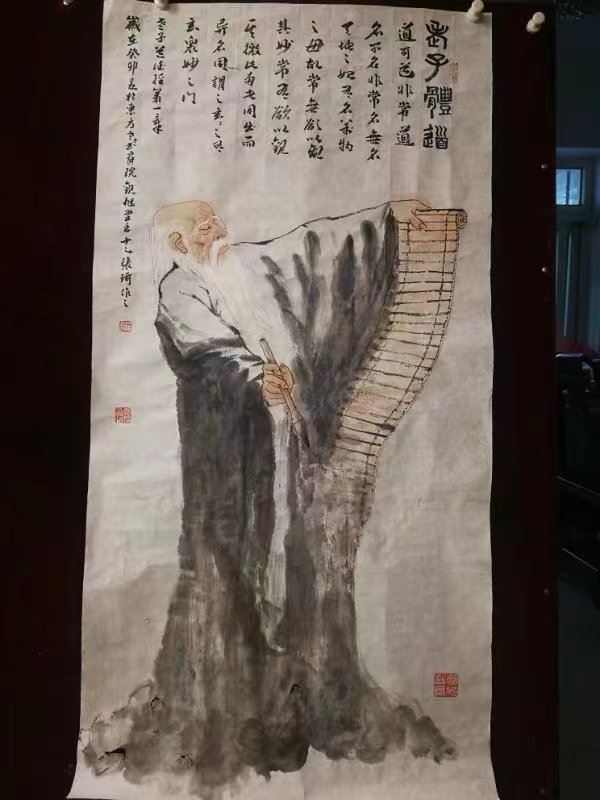 老子體道
道可道非常道
名可名非常名無名
天地之始有名萬物
之母故常無欲以觀
其妙常有欲以觀
其徼此兩者同出而
異名同謂之玄玄之又
玄衆妙之門
老子道德經第一章
歲在癸卯夏於東方書畫院觀堂主張琦作